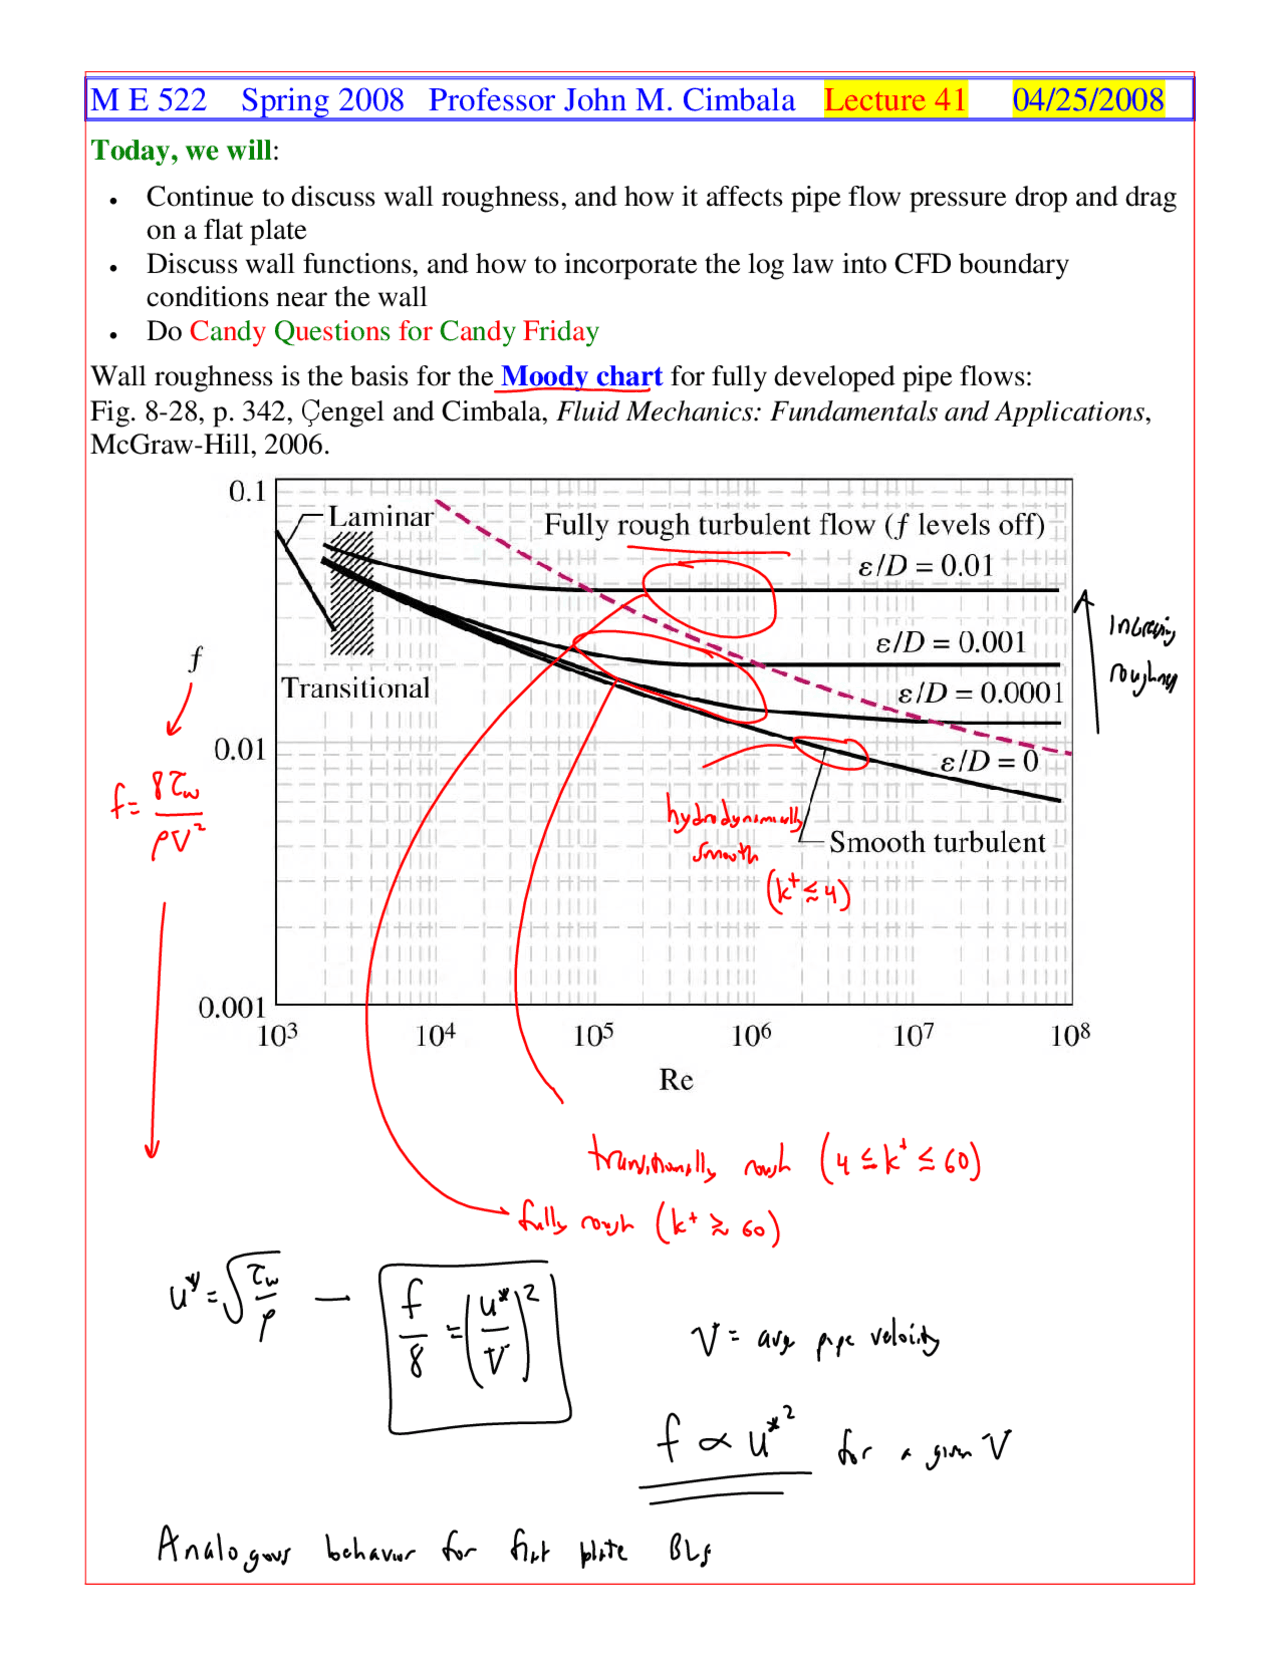 M E 522 Spring 2008 Professor John M. Cimbala Lecture 41 04/25/2008
Today, we will:
• Continue to discuss wall roughness, and how it affects pipe flow pressure drop and drag
on a flat plate
• Discuss wall functions, and how to incorporate the log law into CFD boundary
conditions near the wall
• Do Candy Questions for Candy Friday
Wall roughness is the basis for the Moody chart for fully developed pipe flows:
Fig. 8-28, p. 342, Çengel and Cimbala, Fluid Mechanics: Fundamentals and Applications,
McGraw-Hill, 2006.
0.1
Laminar
Fully rough turbulent flow (f levels off)
ε/D = 0.01
increasing
roughness
ε/D = 0.001
f
Transitional
ε/D = 0.0001
0.01
ε/D = 0
f = 8τw / ρV²
hydrodynamically
smooth
(k⁺ ≲ 4)
Smooth turbulent
0.001
10³ 10⁴ 10⁵ 10⁶ 10⁷ 10⁸
Re
transitionally rough (4 ≤ k⁺ ≤ 60)
fully rough (k⁺ ≳ 60)
u* = √(τw/ρ) — f/8 = (u*/V)²
V = avg pipe velocity
f ∝ u*² for a given V
Analogous behavior for flat plate BLs